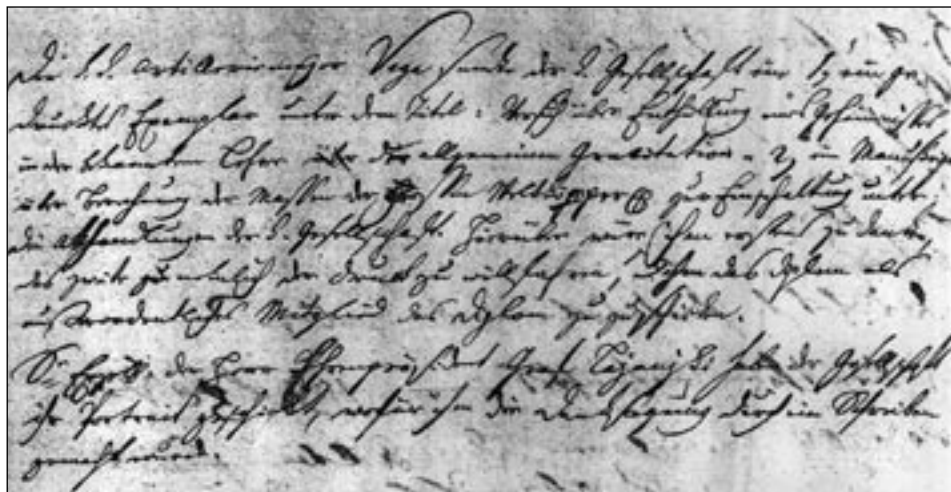 Der k. k. Artilleriemajor Vega sandte der k. Gesellschaft ein 1) ein ge-
drucktes Exemplar unter dem Titel: Versuch über Enthüllung eines Geheimnisses
in der bekannten Lehre der allgemeinen Gravitation = 2) im Manuskript
über Berechnung der Massen der Weltkörper zur Einschaltung unter
die Abhandlungen der k. Gesellschaft. Hierüber wäre ihm erstens zu danken,
das zweite der Druck zu willfahren, das Diplom als
außerordentliches Mitglied das Diplom zuzuschicken.
Sr. Exzell. der Herr Ehrenpräsident Graf habe der Gesellschaft
ihr Portrait geschickt, wofür ihm die Danksagung durch ein Schreiben
gemacht wurde.